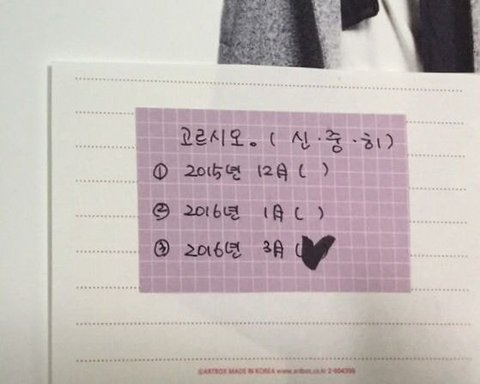 고르시오. ( 신·중·히)
① 2015년 12월 ( )
② 2016년 1월 ( )
③ 2016년 3월 (♥)
©ARTBOX MADE IN KOREA www.artbox.co.kr